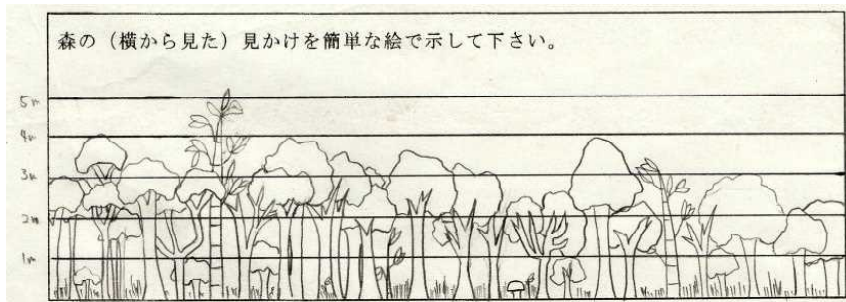 森の（横から見た）見かけを簡単な絵で示して下さい。
5m
4m
3m
2m
1m